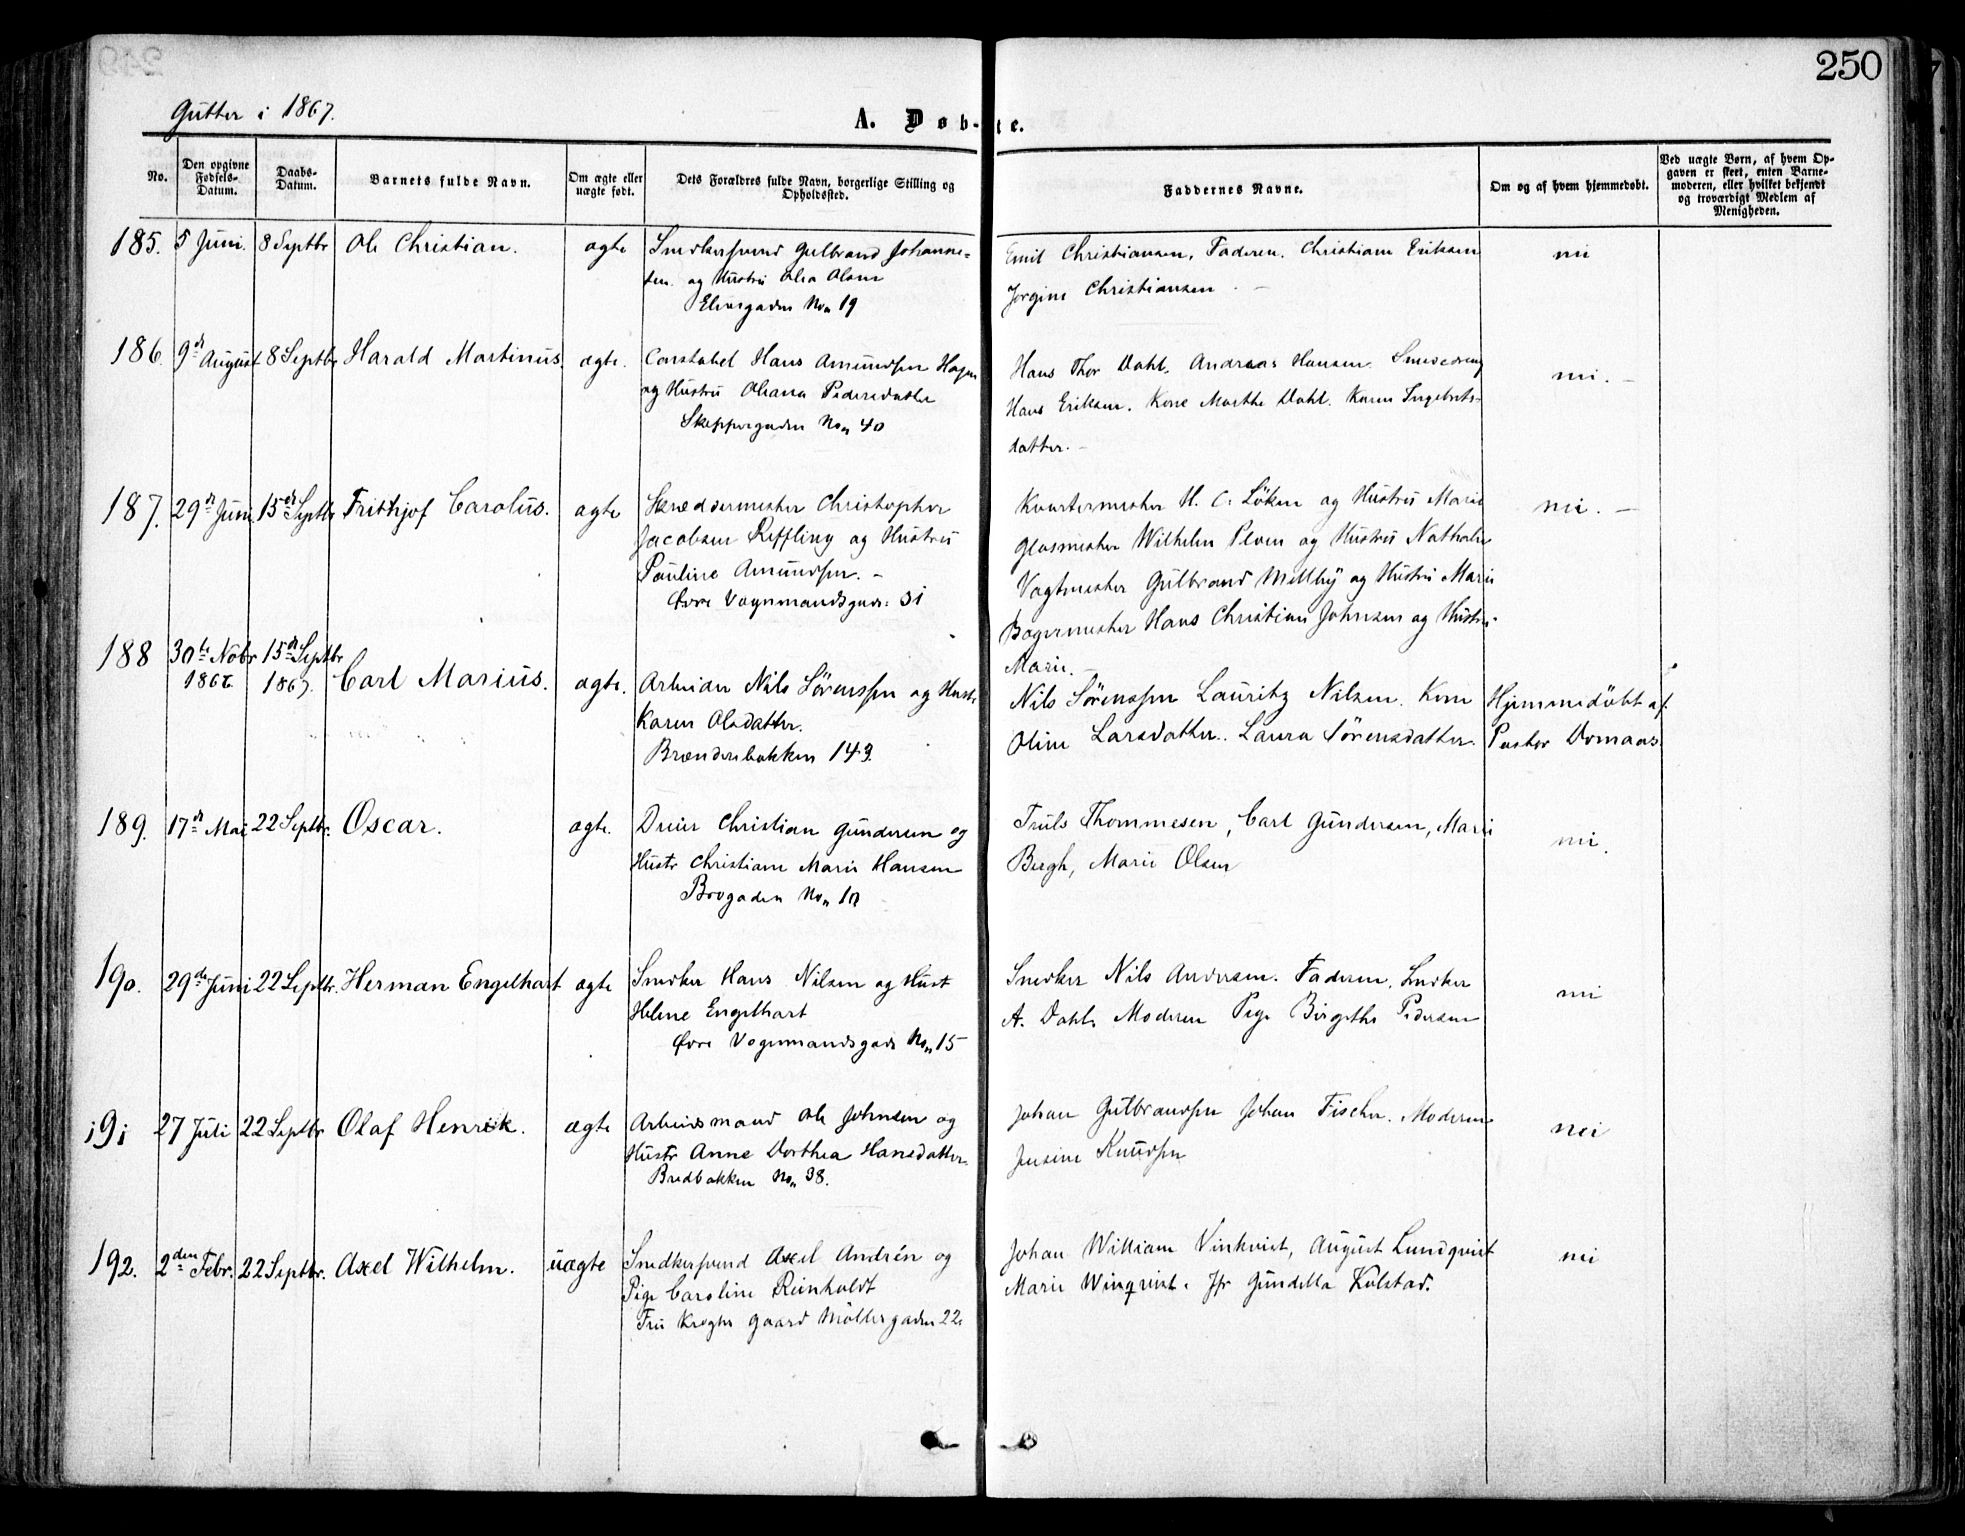 250
Gutter i 1867.
A. Døbte.
No.
Den opgivne Fødsels-Datum.
Daabs-Datum.
Barnets fulde Navn.
Om ægte eller uægte født.
Dets Forældres fulde Navn, borgerlige Stilling og Opholdssted.
Faddernes Navne.
Om og af hvem hjemmedøbt.
Ved uægte Børn, af hvem Opgaven er skeet, enten Barnemoderen, eller hvilket bekjendt og troværdigt Medlem af Menigheden.
185. 5 Juni. 8 Septbr Ole Christian. ægte Snedkersvend Gulbrand Johanne-
sen. og Hustru Olea Olsen
Elvegaden No 19
Emil Christiansen, Faderen. Christiane Eriksen
Jorgine Christiansen
nei
186. 9de August 8 Septbr Harald Martinus. ægte. Constabel Hans Amundsen Hagen
og Hustru Oleana Pedersdatter
Skippergaden No 40
Hans Thor Dahl. Andreas Hansen.
Hans Eriksen. Kone Marthe Dahl. Karen Ingebrets-
datter.
nei.
187. 29de Juni 15de Septbr Frithjof Carolus. ægte Skreddermester Christopher
Jacobsen Reffling og Hustru
Pauline Amundsen.
Øvre Vognmandsgade: 31
Kvartermester H. C. Löken og Hustru Marie
Glasmester Wilhelm Ploen og Hustru Nathalie
Vagtmester Gulbrand Mellby og Hustru Marie
Bagermester Hans Christian Johnsen og Hustru
Marie.
nei.
188 30te Nobr 15de Septbr
1866. 1867. Carl Marius. ægte. Arbeider Nils Sörenssen og Hustr
Karen Olsdatter.
Brændersbakken 143.
Nils Sörenssen Lauritz Nilsen. Kone
Oline Larsdatter. Laura Sörensdatter.
Hjemmedöbt af
Pastor Domaas.
189. 17de Mai 22 Septbr. Oscar. ægte. Dreier Christian Gundersen og
Hustr Christiane Marie Hansen
Brogaden No 10
Truls Thommesen, Carl Gundersen, Marie
Bergh, Marie Olsen
nei.
190. 29de Juni 22 Septbr. Herman Engelhart ægte Snedker Hans Nilsen og Hust
Helene Engelhart
Øvre Vognmandsgade No 15
Snedker Nils Andersen. Faderen, Snedker
A. Dahl. Moderen Pige Birgithe Pedersen
nei
191 27 Juli 22 Septbr Olaf Henrik. ægte Arbeidsmand Ole Johnsen og
Hustr Anne Dorthea Hansdatter.
Bredbakken No 38.
Johan Gulbrandsen Johan Fischer. Moderen
Jensine Knudsen
nei
192. 2den Febr. 22 Septbr. Axel Wilhelm. uægte Snedkersvend Axel Andrén og
Pige Caroline Reinholdt
Fru Kroghs Gaard Möllergaden 22.
Johan William Vinkvist, August Lundqvist
Marie Winqvist. Jfr Gundella Kulstad.
nei